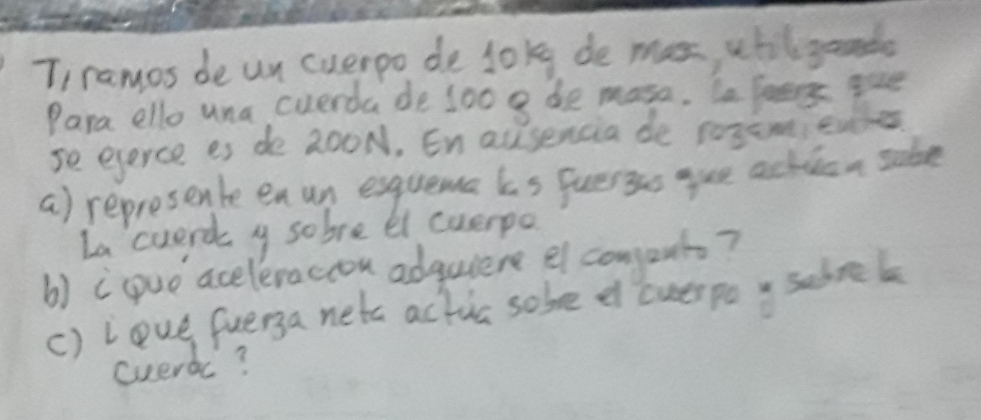 Tiramos de un cuerpo de 10kg de masa, utilizando
Para ello una cuerda de 100 g de masa. La fuerza que
se ejerce es de 200N. En ausencia de rozamientos
a) represente en un esquema las fuerzas que actúan sobre
La cuerda y sobre el cuerpo
b) ¿que aceleracion adquiere el conjunto?
c) ¿Qué fuerza neta actúa sobre el cuerpo y sobre la
cuerda?